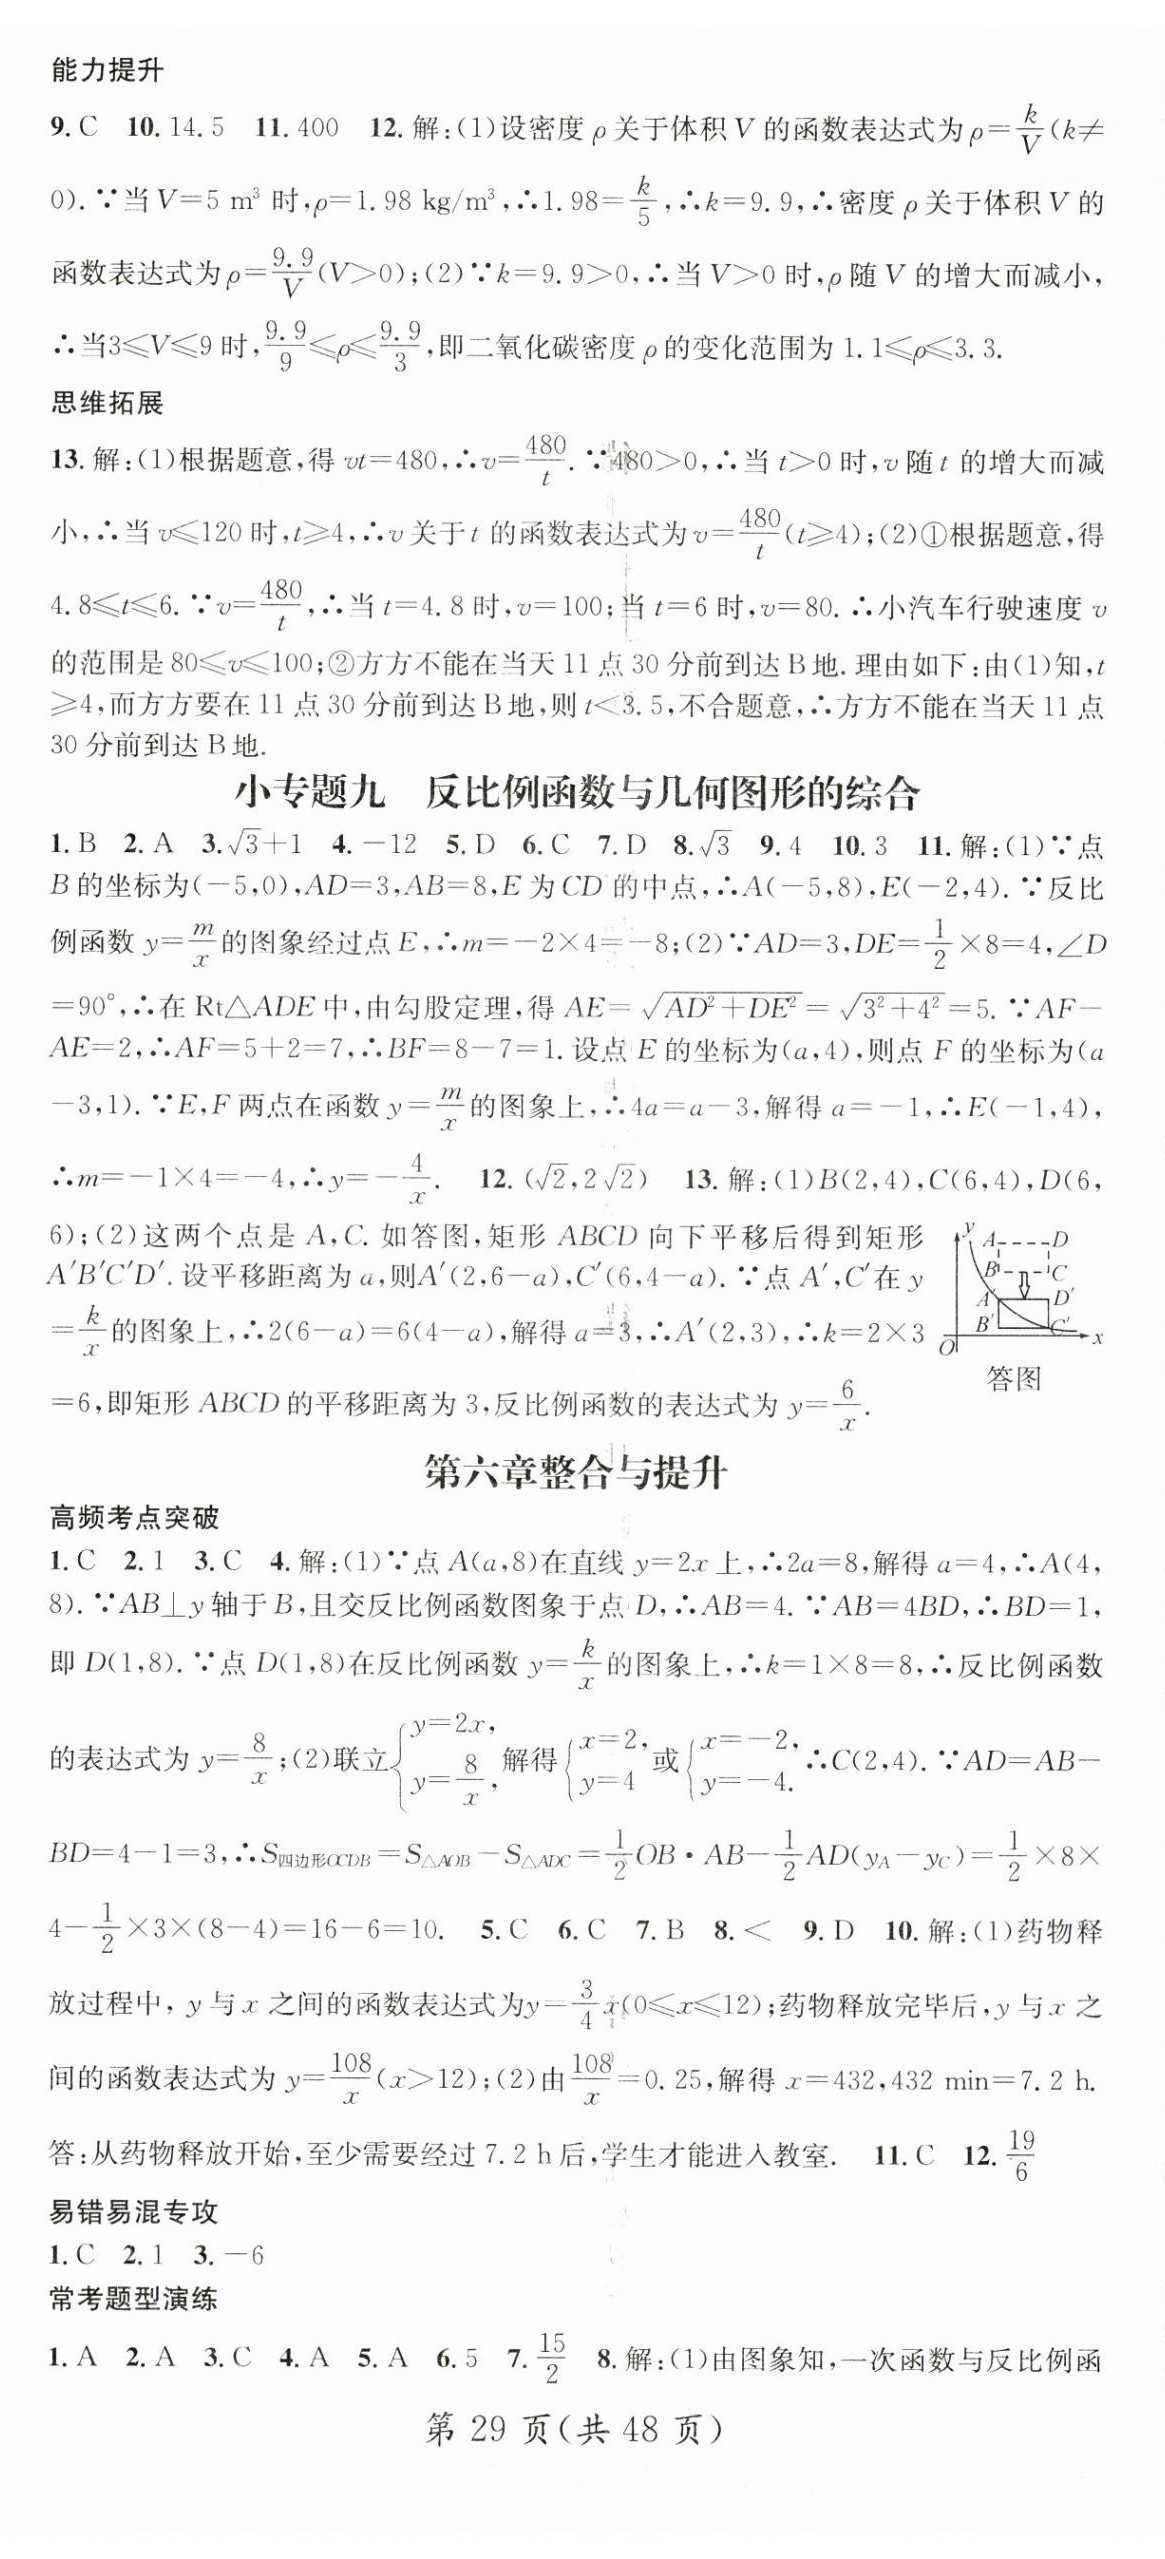 能力提升
9. C 10. 14.5 11. 400 12. 解:(1)设密度 ρ 关于体积 V 的函数表达式为 ρ=k/V(k≠
0). ∵当 V=5 m³ 时,ρ=1.98 kg/m³,∴1.98=k/5,∴k=9.9,∴密度 ρ 关于体积 V 的
函数表达式为 ρ=9.9/V(V>0);(2)∵k=9.9>0,∴当 V>0 时,ρ 随 V 的增大而减小,
∴当3≤V≤9 时,9.9/9≤ρ≤9.9/3,即二氧化碳密度 ρ 的变化范围为 1.1≤ρ≤3.3.
思维拓展
13. 解:(1)根据题意,得 vt=480,∴v=480/t. ∵480>0,∴当 t>0 时,v 随 t 的增大而减
小,∴当 v≤120 时,t≥4,∴v 关于 t 的函数表达式为 v=480/t(t≥4);(2)①根据题意,得
4.8≤t≤6. ∵v=480/t,∴当 t=4.8 时,v=100;当 t=6 时,v=80. ∴小汽车行驶速度 v
的范围是 80≤v≤100;②方方不能在当天 11 点 30 分前到达 B 地. 理由如下:由(1)知,t
≥4,而方方要在 11 点 30 分前到达 B 地,则 t<3.5,不合题意,∴方方不能在当天 11 点
30 分前到达 B 地.
小专题九 反比例函数与几何图形的综合
1. B 2. A 3. √3+1 4. －12 5. D 6. C 7. D 8. √3 9. 4 10. 3 11. 解:(1)∵点
B 的坐标为(－5,0),AD=3,AB=8,E 为 CD 的中点,∴A(－5,8),E(－2,4). ∵反比
例函数 y=m/x 的图象经过点 E,∴m=－2×4=－8;(2)∵AD=3,DE=1/2×8=4,∠D
=90°,∴在 Rt△ADE 中,由勾股定理,得 AE=√(AD²+DE²)=√(3²+4²)=5. ∵AF－
AE=2,∴AF=5+2=7,∴BF=8－7=1. 设点 E 的坐标为(a,4),则点 F 的坐标为(a
－3,1). ∵E,F 两点在函数 y=m/x 的图象上,∴4a=a－3,解得 a=－1,∴E(－1,4),
∴m=－1×4=－4,∴y=－4/x. 12. (√2,2√2) 13. 解:(1)B(2,4),C(6,4),D(6,
6);(2)这两个点是 A,C. 如答图,矩形 ABCD 向下平移后得到矩形
A′B′C′D′. 设平移距离为 a,则A′(2,6－a),C′(6,4－a). ∵点 A′,C′在 y
=k/x 的图象上,∴2(6－a)=6(4－a),解得 a=3,∴A′(2,3),∴k=2×3
=6,即矩形 ABCD 的平移距离为 3,反比例函数的表达式为 y=6/x.
y A D
B C
A′ D′
B′ C′
O x
答图
第六章整合与提升
高频考点突破
1. C 2. 1 3. C 4. 解:(1)∵点 A(a,8)在直线 y=2x 上,∴2a=8,解得 a=4,∴A(4,
8). ∵AB⊥y 轴于 B,且交反比例函数图象于点 D,∴AB=4. ∵AB=4BD,∴BD=1,
即 D(1,8). ∵点 D(1,8)在反比例函数 y=k/x 的图象上,∴k=1×8=8,∴反比例函数
的表达式为 y=8/x;(2)联立{y=2x, y=8/x, 解得{x=2, y=4 或{x=－2, y=－4. ∴C(2,4). ∵AD=AB－
BD=4－1=3,∴S四边形OCDB=S△AOB－S△ADC=1/2 OB·AB－1/2 AD(yA－yC)=1/2×8×
4－1/2×3×(8－4)=16－6=10. 5. C 6. C 7. B 8. < 9. D 10. 解:(1)药物释
放过程中, y 与 x 之间的函数表达式为y=3/4x(0≤x≤12);药物释放完毕后,y 与 x 之
间的函数表达式为 y=108/x(x>12);(2)由108/x=0.25,解得 x=432,432 min=7.2 h.
答:从药物释放开始,至少需要经过 7.2 h 后,学生才能进入教室. 11. C 12. 19/6
易错易混专攻
1. C 2. 1 3. －6
常考题型演练
1. A 2. A 3. C 4. A 5. A 6. 5 7. 15/2 8. 解:(1)由图象知,一次函数与反比例函
第 29 页(共 48 页)